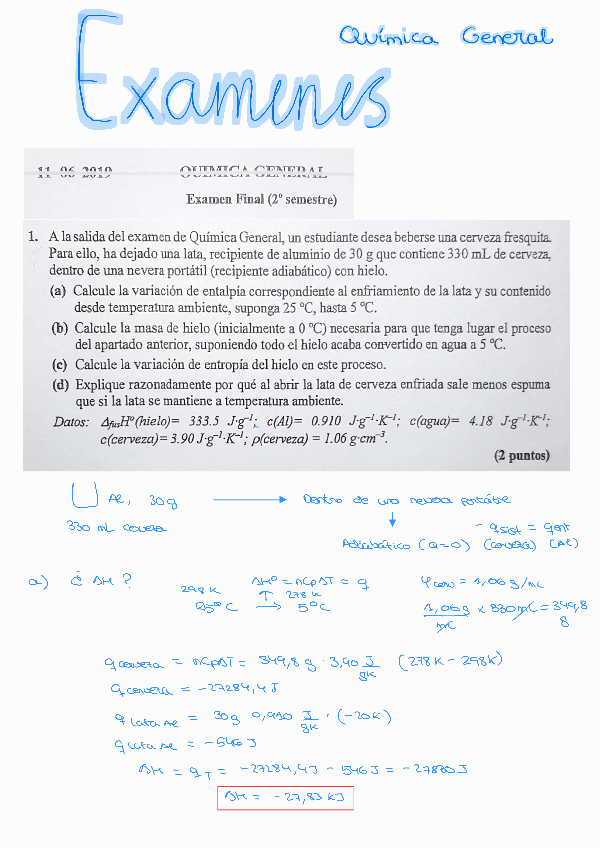 Química General
Examenes
11-06-2019 QUIMICA GENERAL
Examen Final (2º semestre)
1. A la salida del examen de Química General, un estudiante desea beberse una cerveza fresquita.
Para ello, ha dejado una lata, recipiente de aluminio de 30 g que contiene 330 mL de cerveza,
dentro de una nevera portátil (recipiente adiabático) con hielo.
(a) Calcule la variación de entalpía correspondiente al enfriamiento de la lata y su contenido
desde temperatura ambiente, suponga 25 ºC, hasta 5 ºC.
(b) Calcule la masa de hielo (inicialmente a 0 ºC) necesaria para que tenga lugar el proceso
del apartado anterior, suponiendo todo el hielo acaba convertido en agua a 5 ºC.
(c) Calcule la variación de entropía del hielo en este proceso.
(d) Explique razonadamente por qué al abrir la lata de cerveza enfriada sale menos espuma
que si la lata se mantiene a temperatura ambiente.
Datos: ΔfusHº(hielo)= 333.5 J·g⁻¹; c(Al)= 0.910 J·g⁻¹·K⁻¹; c(agua)= 4.18 J·g⁻¹·K⁻¹;
c(cerveza)= 3.90 J·g⁻¹·K⁻¹; ρ(cerveza) = 1.06 g·cm⁻³.
(2 puntos)
Al, 30g → Dentro de una nevera portátil
330 mL cerveza
↓ - qsist = qent
Adiabático (Q=0) (cerveza) (Al)
a) ¿ ΔH ? ΔHº = nCpΔT = q
298 K ↑ 278 K
25º C → 5º C
φcerv = 1,06 g/mL
1,06g/mL x 330mL = 349,8 g
qcerveza = nCpΔT = 349,8 g · 3,90 J/gK · (278K - 298K)
qcerveza = -27284,4 J
qlata Al = 30g 0,910 J/gK · (-20K)
qlata Al = -546 J
ΔH = qT = -27284,4J - 546 J = -27830J
ΔH = -27,83 KJ